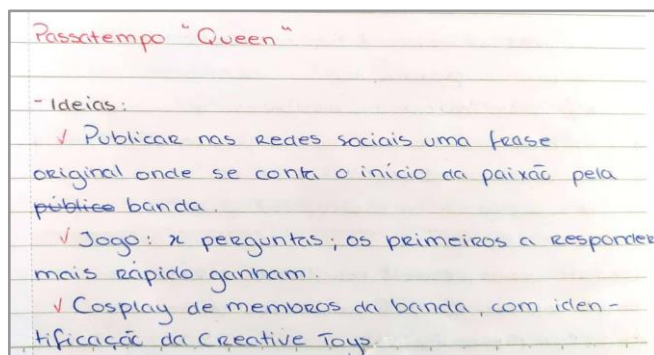 Passatempo "Queen"
- Ideias:
√ Publicar nas redes sociais uma frase
original onde se conta o início da paixão pela
público banda.
√ Jogo: x perguntas; os primeiros a responder
mais rápido ganham.
√ Cosplay de membros da banda, com iden-
tificação da Creative Toys.